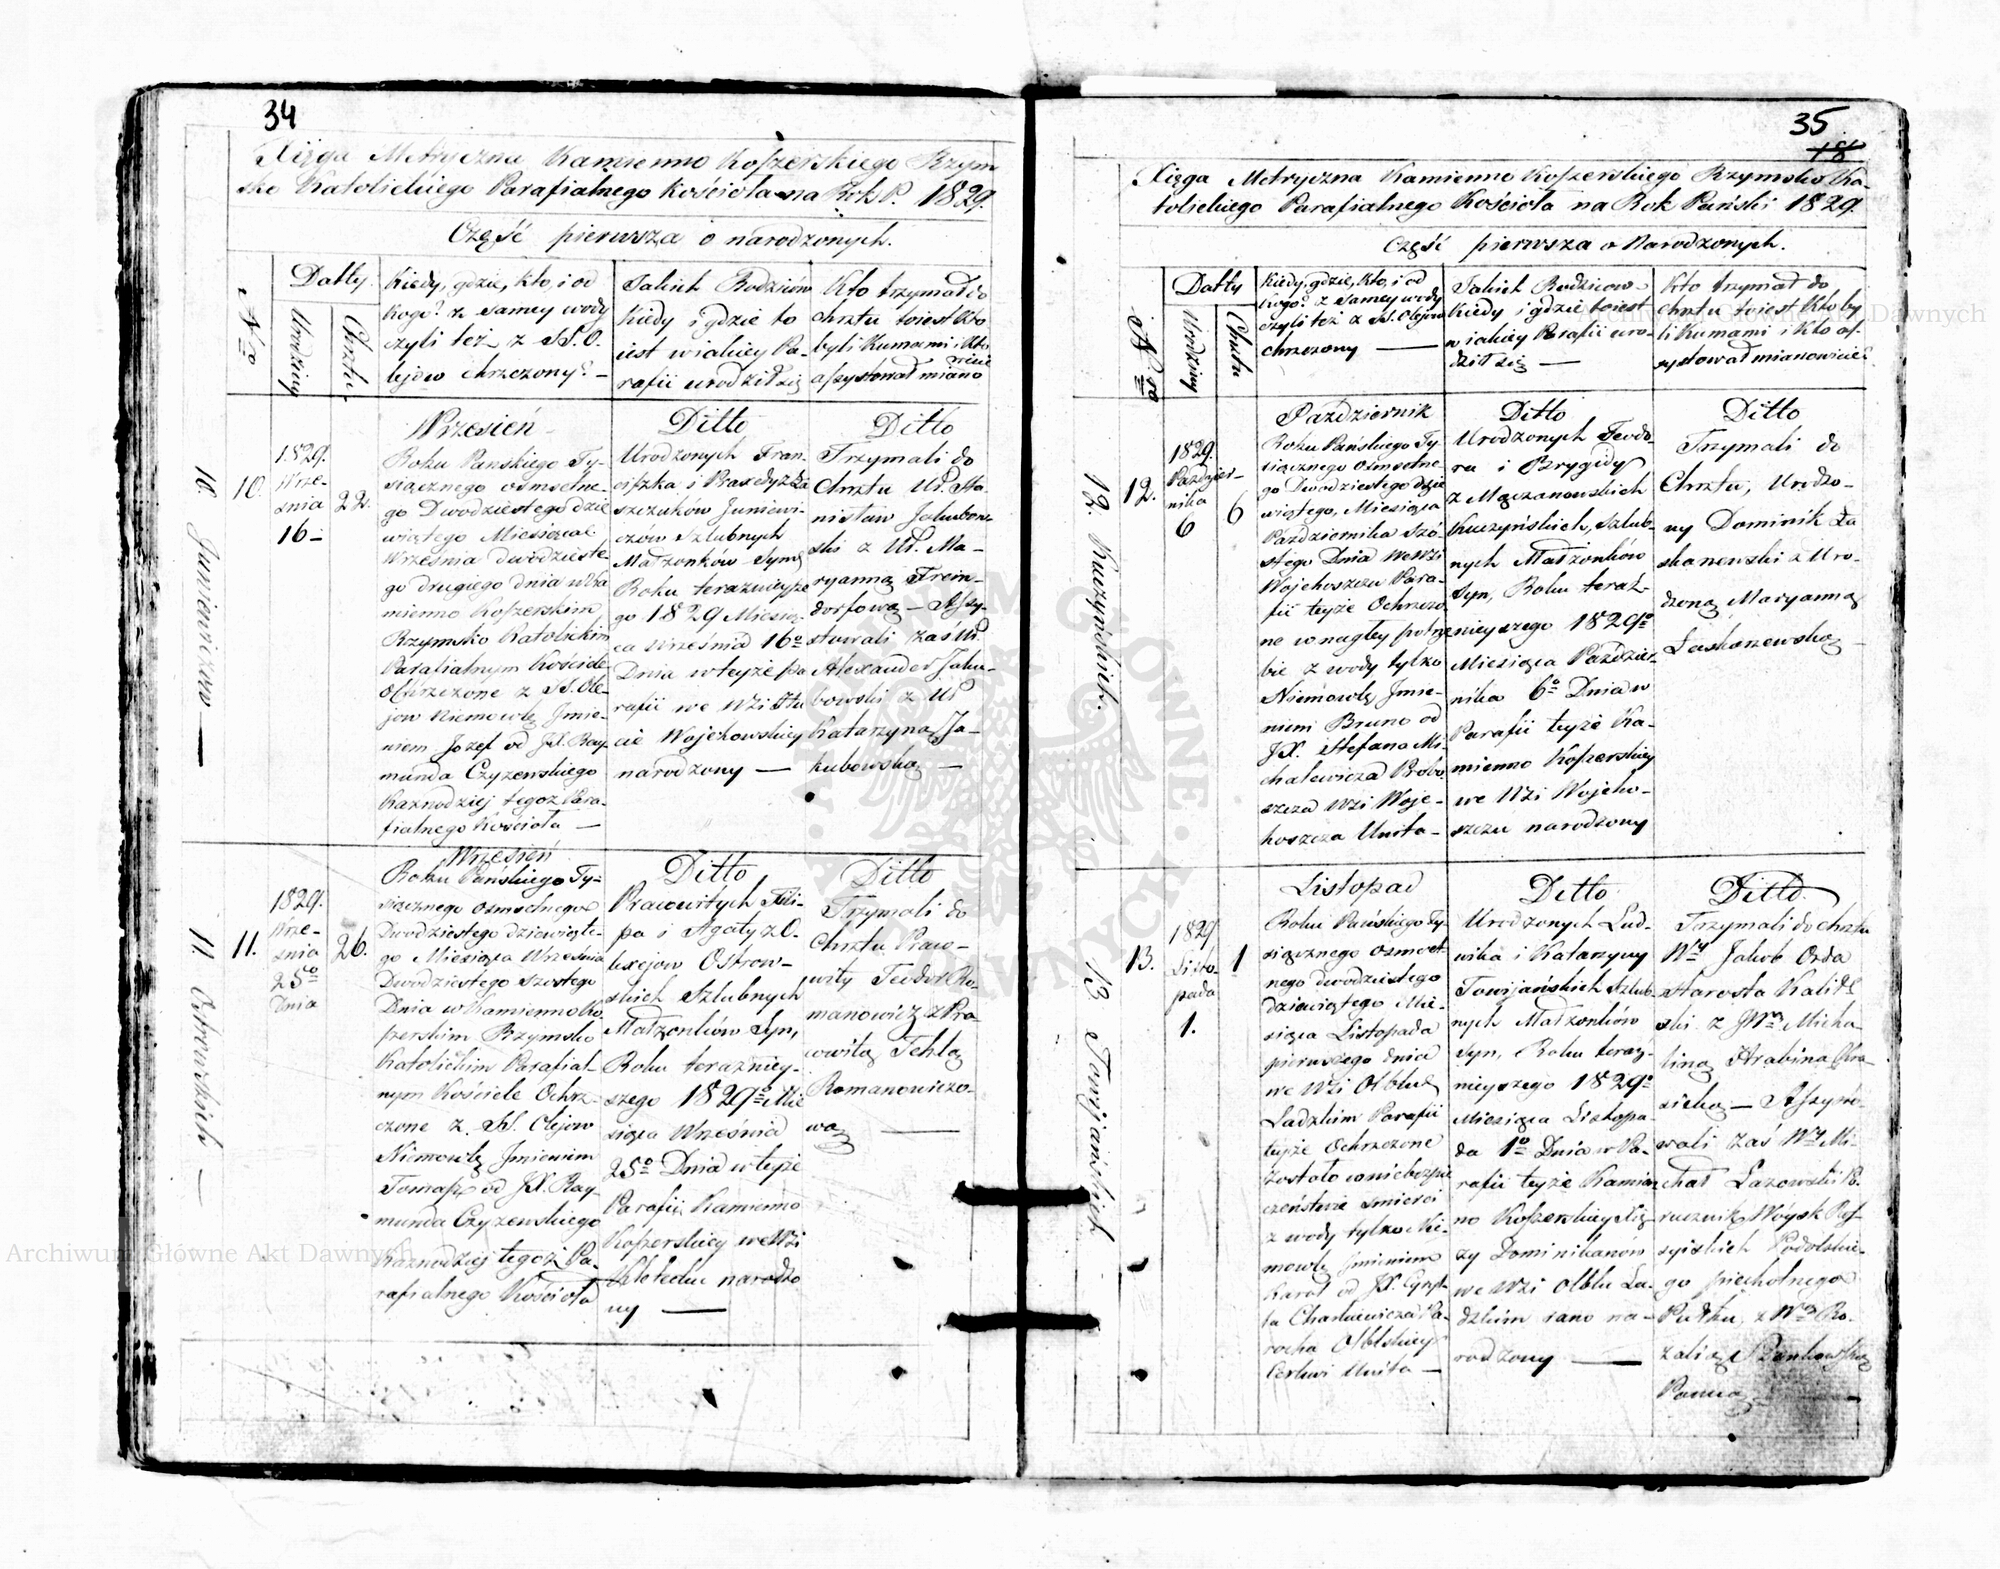 34
Xięga Metryczna Kamienno Koszerskiego Rzym
sko Katolickiego Parafialnego Kościoła na Rok P. 1829.
Część pierwsza o narodzonych.
Nro
Datty
Urodziny
Chrztu
Kiedy, gdzie, kto, i od
kogo? z samey wody
czyli też z SS. O.
lejów chrzczony? —
Jakich Rodziców
kiedy i gdzie to
iest w iakiey Pa-
rafii urodził się
Kto trzymał do
chrztu toiest kto
byli Kumami i kto
assystował miano
wicie
10. Juniewiczowo —
10.
1829.
Wrze-
śnia
16 —
22.
Wrzesień
Roku Pańskiego Ty-
siącznego ośmsetne-
go Dwudziestego dzie
wiątego Miesiąca
Września dwudzieste-
go drugiego dnia w Ka
mienno Koszerskim
Rzymsko Katolickim
Parafialnym Kościele
Ochrzczone z SS. Ole-
jow Niemowlę Jmie-
niem Jozef od JX. Ray-
munda Czyzewskiego
Kaznodziej tegoż Para-
fialnego Kościoła —
Ditto
Urodzonych Fran-
ciszka i Praxedy z Da
szczuków Juniewi-
czów Szlubnych
Małżonków Syn,
Roku teraznieysze
go 1829 Miesią-
ca Września 16º
Dnia w teyże pa
rafii we Wsi Stu
cie Wojchowskiey
narodzony —
Ditto
Trzymali do
Chrztu W. Sta-
nisław Jakubow-
ski z W. Ma-
ryanną Frein-
dorfową — Assy-
stowali zaś W.
Alexander Jaku-
bowski z W
Katarzyną Ja-
kubowską —
11. Ostrowskich —
11.
1829.
Wrze-
śnia
25º
Dnia
26.
Wrzesień
Roku Pańskiego Ty-
siącznego Osmsetnego
Dwudziestego dziewiąte-
go Miesiąca Września
Dwudziestego szostego
Dnia w Kamienno Ko
szerskim Rzymsko
Katolickim Parafial-
nym Kościele Ochrz-
czone z SS. Olejow
Niemowlę Jmieniem
Tomasz od JX. Ray
munda Czyzewskiego
Kaznodziej tegoż Pa-
rafialnego Kościoła
Ditto
Pracowitych Fili-
pa i Agaty z O-
lexejow Ostrow-
skich Szlubnych
Małżonków Syn,
Roku teraźniey-
szego 1829º Mie
siąca Września
25º Dnia w teyże
Parafii Kamienno
Koszerskiey we Wsi
narodzo
ny —
Ditto
Trzymali do
Chrztu Praco-
wity Teodor Ro-
manowicz z Pra-
cowitą Teklą
Romanowiczo-
wą —
35
18
Xięga Metryczna Kamienno Koszerskiego Rzymsko Ka-
tolickiego Parafialnego Kościoła na Rok Pański 1829.
Część pierwsza o Narodzonych.
Nro
Datty
Urodziny
Chrztu
Kiedy, gdzie, kto, i od
kogo? z samey wody
czyli też z SS. Olejow
chrzczony —
Jakich Rodzicow
kiedy i gdzie toiest
w iakiey Parafii uro-
dził się —
Kto trzymał do
chrztu toiest kto by
li Kumami i kto as
systował mianowicie?
12. Kuczyńskich.
12.
1829
Paździer-
nika
6
6
Październik
Roku Pańskiego Ty-
siącznego Ośmsetne-
go Dwudziestego dzie
wiątego, Miesiąca
Października Szó-
stego Dnia we Wsi
Wojchoszczu Para-
fii teyże Ochrzczo
ne w nagłey potrze
bie z wody tylko
Niemowlę Jmie-
niem Bruno od
JX. Stefana Mi-
chalewicza Probo
szcza Wsi Wojc-
hoszcza Unita —
Ditto
Urodzonych Teodo-
ra i Brygidy
z Mączanowskich
Kuczyńskich, Szlub-
nych Małżonków
Syn, Roku teraź-
nieyszego 1829º
Miesiąca Paździer-
nika 6º Dnia w
Parafii teyże Ka-
mienno Koszerskiey
we Wsi Wojcho-
szczu narodzony
Ditto
Trzymali do
Chrztu, Urodzo-
ny Dominik Ła
skarzewski z Uro-
dzoną Maryanną
Laskarzewską —
13 Towijańskich
13.
1829
Listo-
pada
1.
1
Listopad
Roku Pańskiego Ty-
siącznego Ośmset-
nego dwudziestego
dziewiątego Mie-
siąca Listopada
pierwszego dnia
we Wsi Olblu
Ladzkim Parafii
teyże Ochrzczone
zostało w niebezpie
czeństwie śmierci
z wody tylko Nie-
mowlę Jmieniem
Karol od JX.
Charkiewicza Pa-
rocha Olblskiey
Cerkwi Unita —
Ditto
Urodzonych Lud-
wika i Katarzyny
Towijańskich Szlub-
nych Małżonków
Syn, Roku teraz-
nieyszego 1829º
Miesiąca Listopa-
da 1º Dnia w Pa-
rafii teyże Kamien
no Koszerskiey Xię
ży Dominikanów
we Wsi Olblu La-
dzkim rano na-
rodzony —
Ditto
Trzymali do chrztu
Wy Jakob Orda
Starosta
z JWą Micha-
liną Hrabiną Kra
sicką — Assysto-
wali zaś Wy Mi-
chał Lazowski P.
rucznik Woysk Ros-
syiskich Podolskie-
go piechotnego
Pułku, z Wą Ro-
zalią
Panną —
Archiwum Główne Akt Dawnych
Archiwum Główne Akt Dawnych
ARCHIWUM GŁÓWNE AKT DAWNYCH